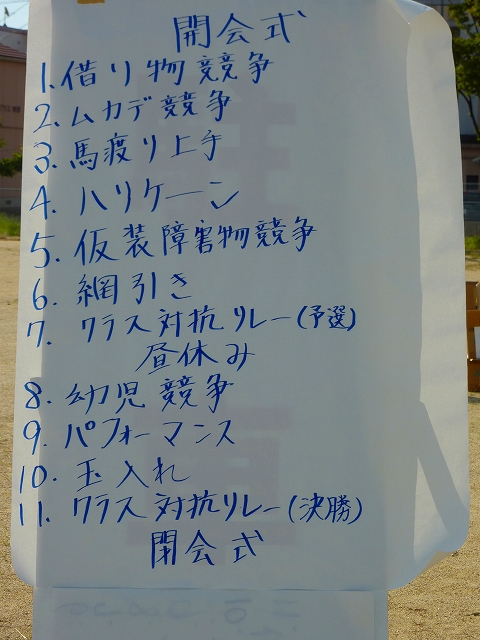 開会式
1. 借り物競争
2. ムカデ競争
3. 馬渡り上手
4. ハリケーン
5. 仮装障害物競争
6. 網引き
7. クラス対抗リレー(予選)
昼休み
8. 幼児競争
9. パフォーマンス
10. 玉入れ
11. クラス対抗リレー(決勝)
閉会式